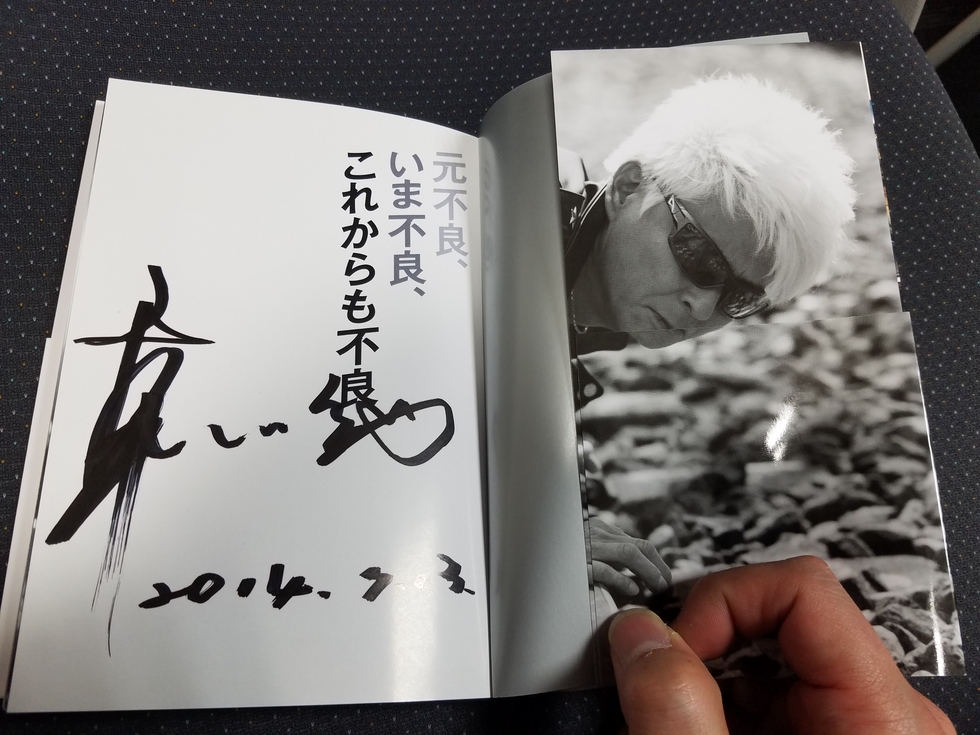 元不良、
いま不良、
これからも不良
2014. 7. 3.